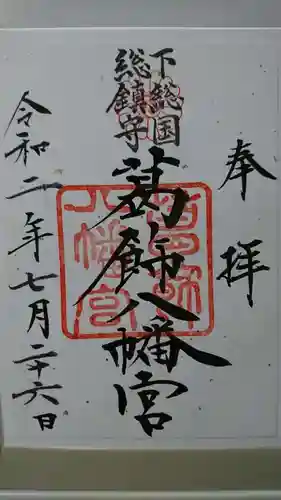 奉拝
下総国
総鎮守
葛飾八幡宮
令和二年七月二十六日
葛飾
八幡宮